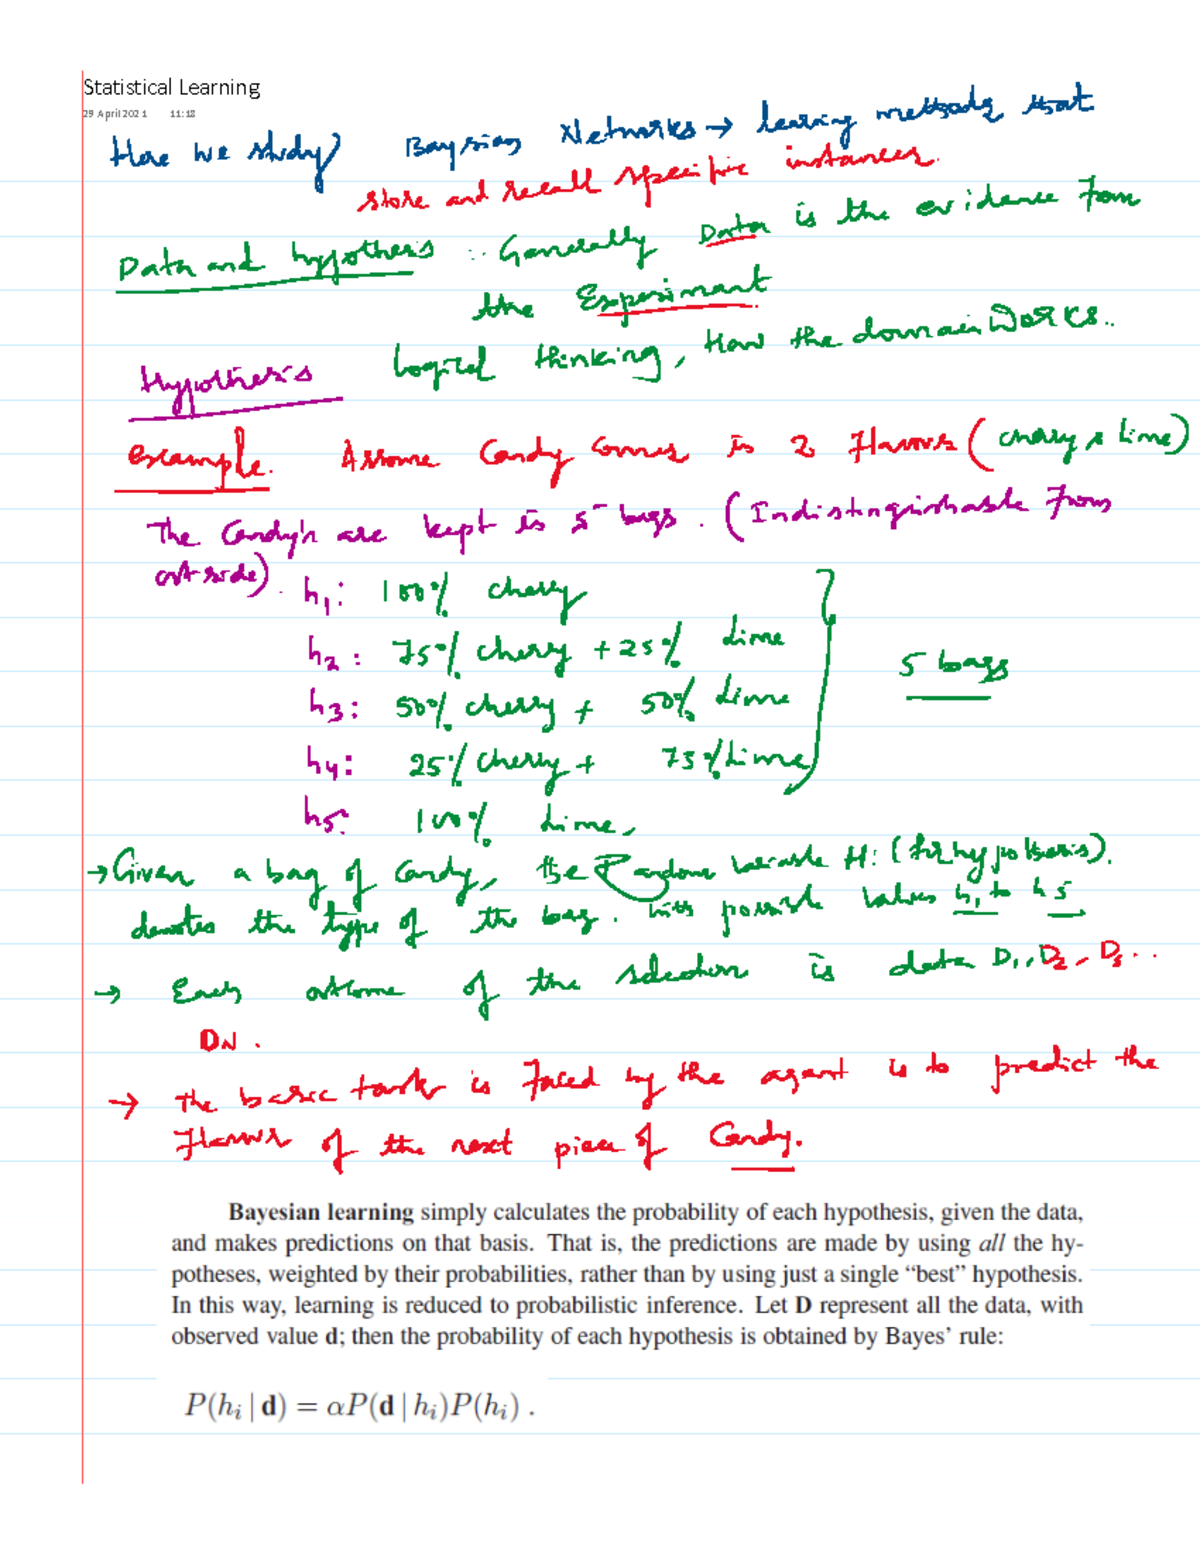 Statistical Learning
29 April 2021 11:18
Here we study Baysian Networks → learning methods that
store and recall specific instances.
Data and hypothesis :- Generally Data is the evidence from
the Experiment
Hypothesis Logical thinking, How the domain Works..
example. Assume Candy Comes in 2 Flavors ( cherry & Lime)
The Candy's are kept in 5 bags. (Indistinguishable From
outside).
h1: 100% cherry
h2: 75% cherry + 25% Lime
h3: 50% cherry + 50% Lime
5 bags
h4: 25% cherry + 75% Lime
h5: 100% Lime,
→ Given a bag of Candy, the Random Variable H: (for hypothesis).
denotes the type of the bag. with possible Values h1 to h5
→ Each outcome of the selection is data D1, D2, D3..
DN.
→ The basic task is Faced by the agent is to predict the
Flavor of the next piece of Candy.
Bayesian learning simply calculates the probability of each hypothesis, given the data,
and makes predictions on that basis. That is, the predictions are made by using all the hy-
potheses, weighted by their probabilities, rather than by using just a single “best” hypothesis.
In this way, learning is reduced to probabilistic inference. Let D represent all the data, with
observed value d; then the probability of each hypothesis is obtained by Bayes’ rule:
P(hᵢ | d) = αP(d | hᵢ)P(hᵢ) .